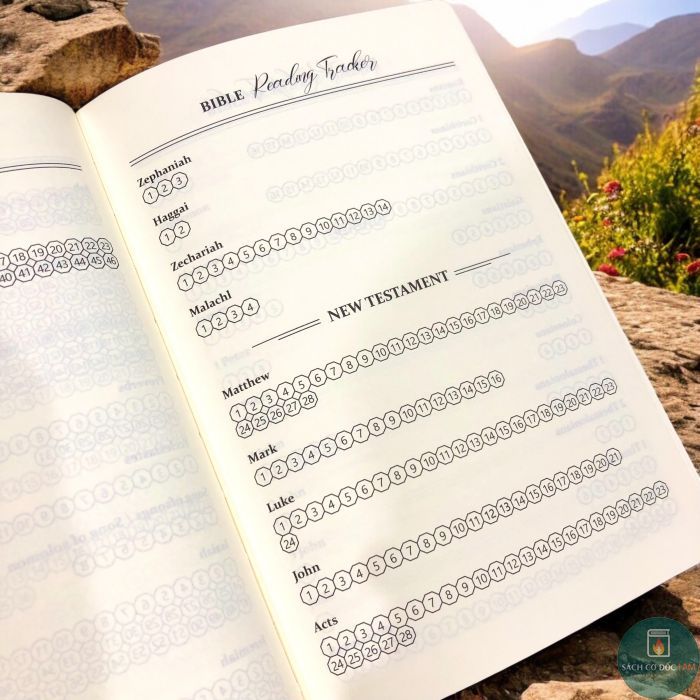 17 18 19 20 21 22 23
40 41 42 43 44 45 46
BIBLE Reading Tracker
Zephaniah
1 2 3
Haggai
1 2
Zechariah
1 2 3 4 5 6 7 8 9 10 11 12 13 14
MalachI
1 2 3 4
NEW TESTAMENT
Matthew
1 2 3 4 5 6 7 8 9 10 11 12 13 14 15 16 17 18 19 20 21 22 23
24 25 26 27 28
Mark
1 2 3 4 5 6 7 8 9 10 11 12 13 14 15 16
Luke
1 2 3 4 5 6 7 8 9 10 11 12 13 14 15 16 17 18 19 20 21 22 23
24
John
1 2 3 4 5 6 7 8 9 10 11 12 13 14 15 16 17 18 19 20 21
Acts
1 2 3 4 5 6 7 8 9 10 11 12 13 14 15 16 17 18 19 20 21 22 23
24 25 26 27 28
SÁCH CƠ ĐỐC